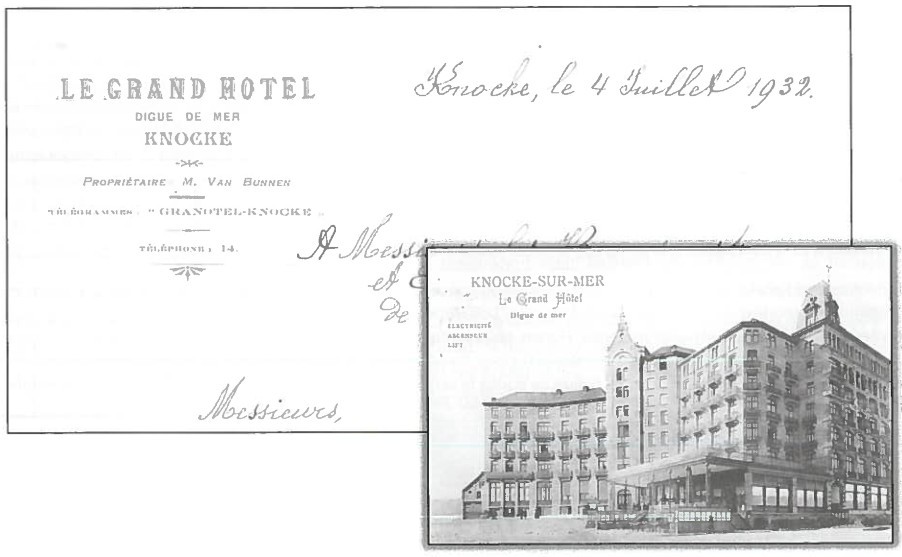 LE GRAND HOTEL
DIGUE DE MER
KNOCKE
PROPRIÉTAIRE M. VAN BUNNEN
TÉLÉGRAMMES: "GRANOTEL-KNOCKE"
TÉLÉPHONE: 14.
Knocke, le 4 Juillet 1932.
A Messi
et E
de
Messieurs,
KNOCKE-SUR-MER
Le Grand Hôtel
Digue de mer
ELECTRICITÉ
ASCENSEUR
LIFT